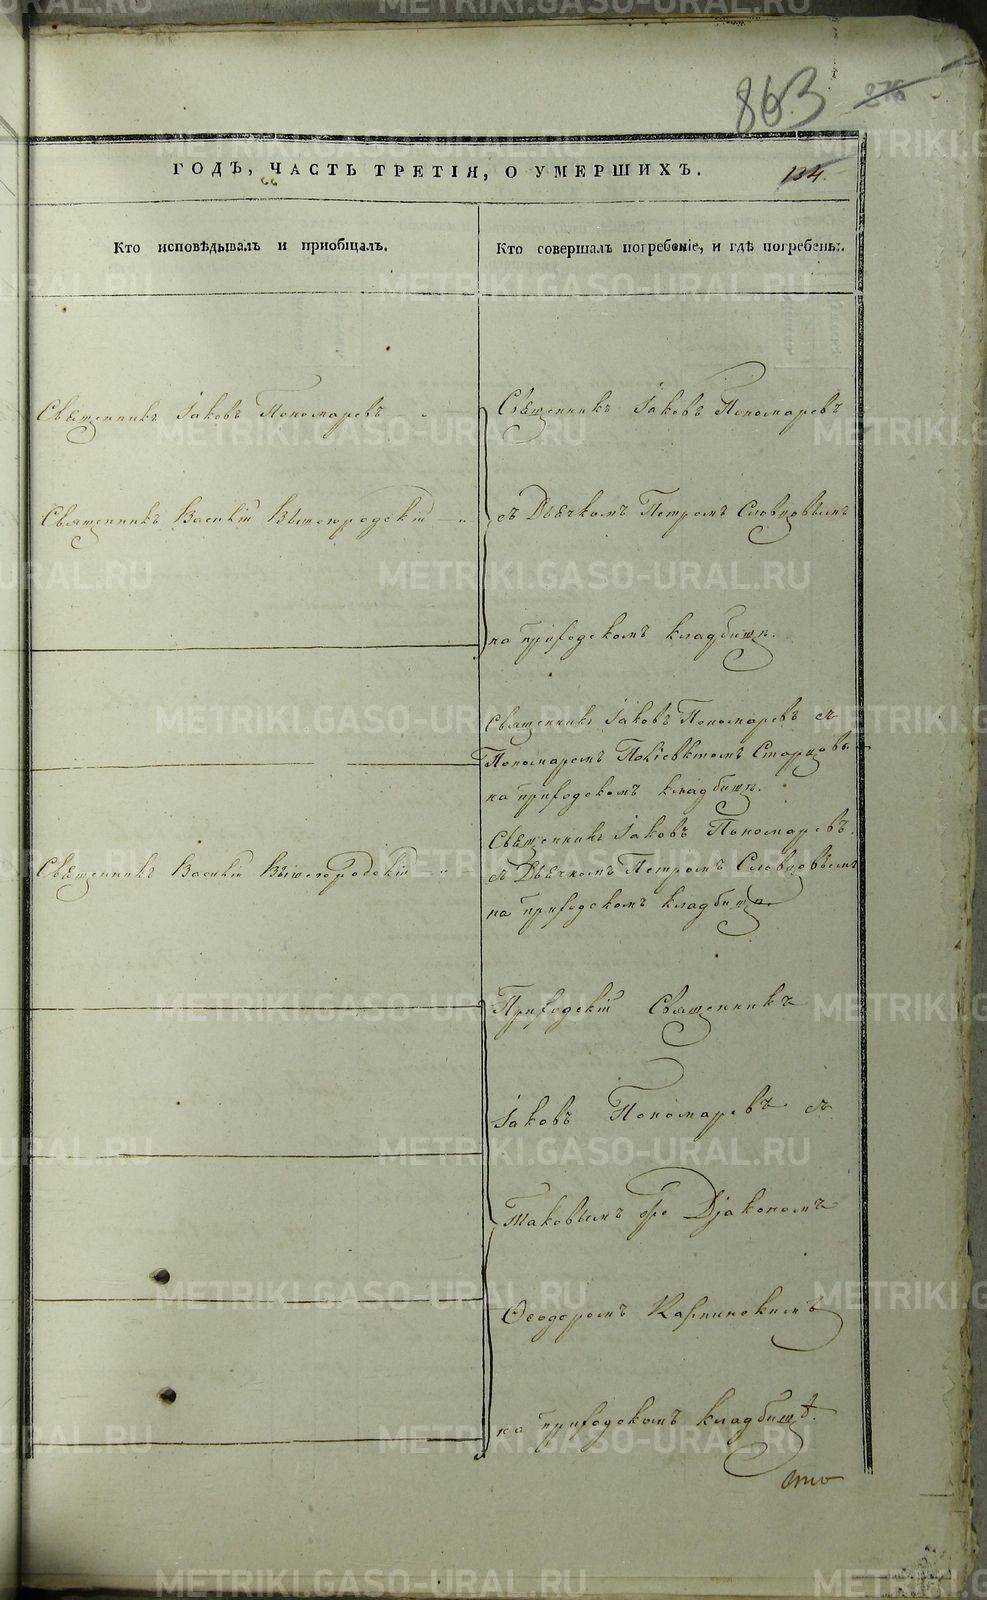 863 276
ГОДЪ, ЧАСТЬ ТРЕТІЯ, О УМЕРШИХЪ. 134.
Кто исповѣдывалъ и пріобщалъ.
Кто совершалъ погребеніе, и гдѣ погребены.
Священникъ Іаковъ Пономаревъ
Священникъ Іаковъ Пономаревъ
Священникъ Василій Вышегородскій
съ Дьячкомъ Петромъ Словцовымъ
на приходскомъ кладбищѣ.
Священникъ Іаковъ Пономаревъ съ
Пономаремъ Поліевктомъ Старцовы
на приходскомъ кладбищѣ.
Священникъ Іаковъ Пономаревъ
Священникъ Василій Вышегородскій
съ Дьячкомъ Петромъ Словцовымъ
на приходскомъ кладбищѣ
Приходскій Священникъ
Іаковъ Пономаревъ съ
таковымъ же Діакономъ
Ѳеодоромъ Карпинскимъ
на приходскомъ кладбищѣ.
METRIKI.GASO-URAL.RU